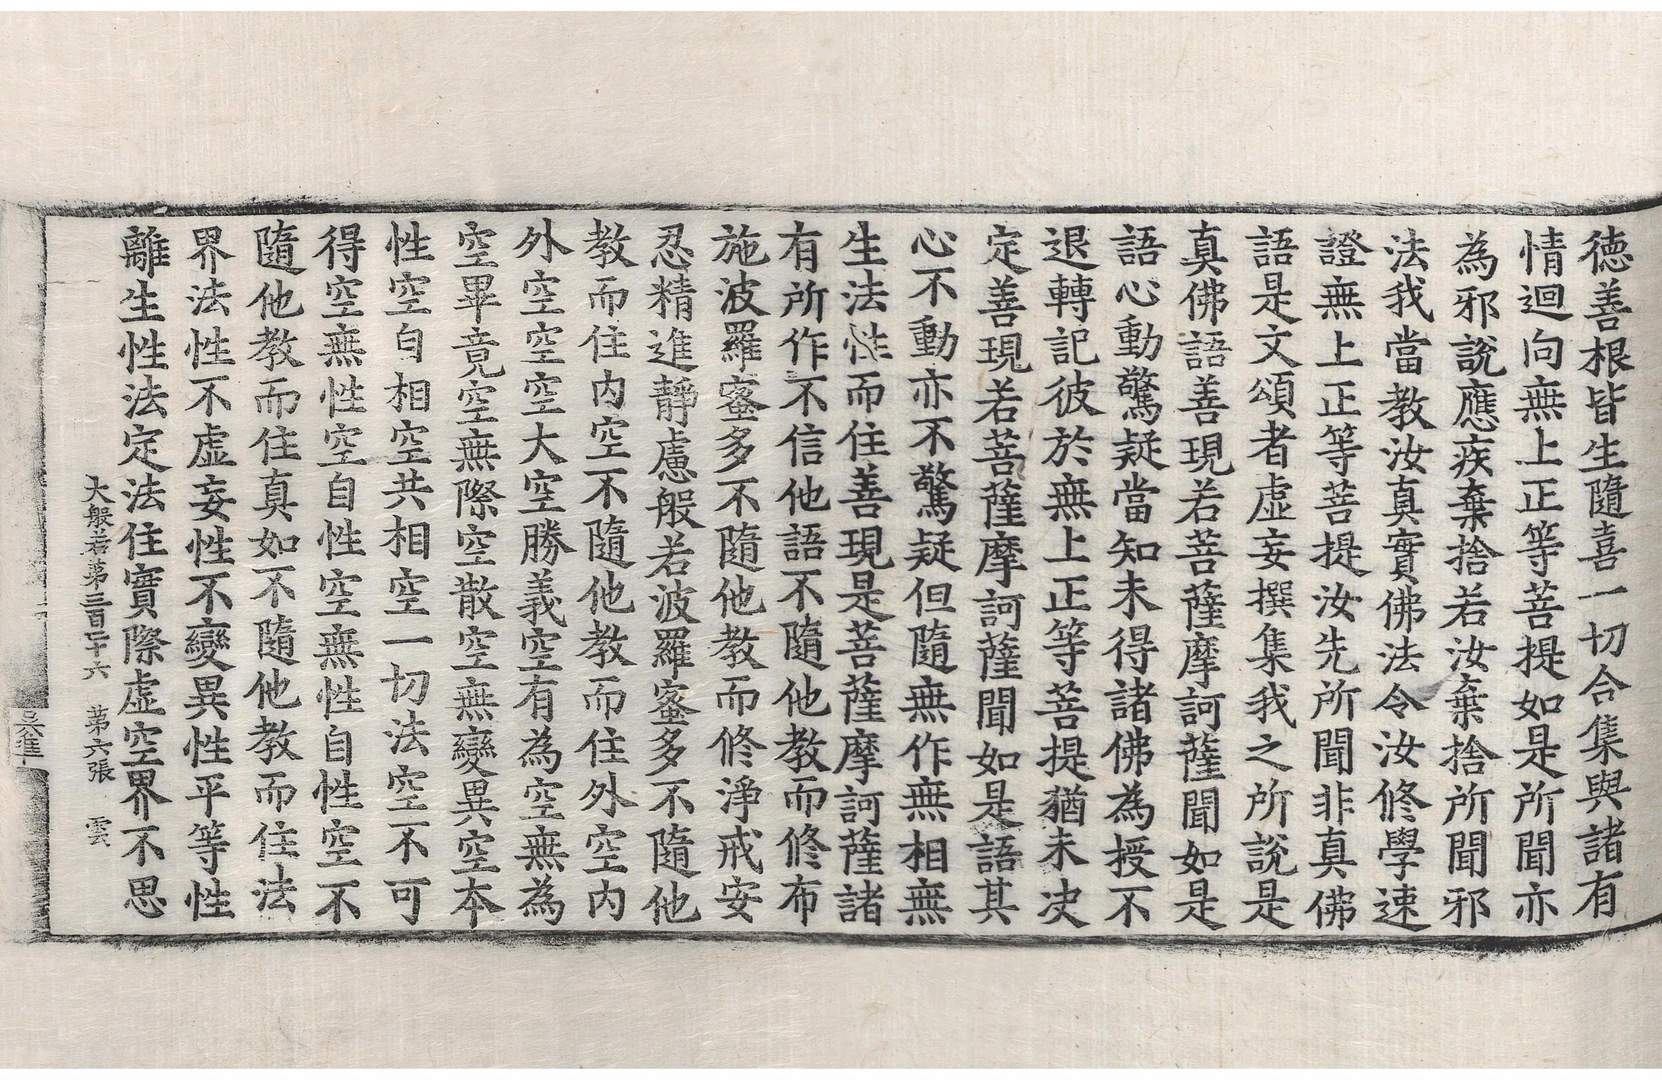 德善根皆生隨喜一切合集與諸有
情迴向無上正等菩提如是所聞亦
為邪說應疾棄捨若汝棄捨所聞邪
法我當教汝真實佛法令汝修學速
證無上正等菩提汝先所聞非真佛
語是文頌者虛妄撰集我之所說是
真佛語善現若菩薩摩訶薩聞如是
語心動驚疑當知未得諸佛為授不
退轉記彼於無上正等菩提猶未決
定善現若菩薩摩訶薩聞如是語其
心不動亦不驚疑但隨無作無相無
生法性而住善現是菩薩摩訶薩諸
有所作不信他語不隨他教而修布
施波羅蜜多不隨他教而修淨戒安
忍精進靜慮般若波羅蜜多不隨他
教而住內空不隨他教而住外空內
外空空空大空勝義空有為空無為
空畢竟空無際空散空無變異空本
性空自相空共相空一切法空不可
得空無性空自性空無性自性空不
隨他教而住真如不隨他教而住法
界法性不虛妄性不變異性平等性
離生性法定法住實際虛空界不思
大般若第三百二十六 第六張 雲